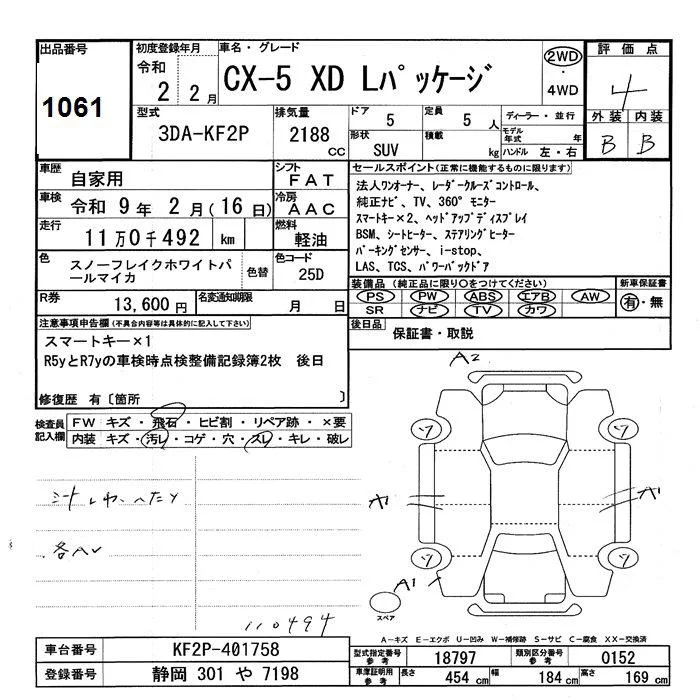 出品番号
1061
初度登録年月
令和
2 2月
車名・グレード
CX-5 XD Lパッケージ
2WD
・
4WD
評価点
4
外装 内装
B B
型式
3DA-KF2P
排気量
2188 CC
ドア
5
定員
5 人
形状
SUV
積載
kg
ディーラー・並行
モデル年式 年
ハンドル 左・右
車歴
自家用
シフト
FAT
車検
令和 9年 2月(16日)
冷房
AAC
走行
11万0千492 km
燃料
軽油
色
スノーフレイクホワイトパールマイカ
色替
色コード
25D
R券
13,600円
名変通知期限
月 日
セールスポイント(正常に機能するものに限ります)
法人ワンオーナー、レーダークルーズコントロール、
純正ナビ、TV、360°モニター
スマートキー×2、ヘッドアップディスプレイ
BSM、シートヒーター、ステアリングヒーター
パーキングセンサー、i-stop、
LAS、TCS、パワーバックドア
装備品(純正品に限り○をつけてください)
PS PW ABS エアB AW
SR ナビ TV カワ
新車保証書
有・無
後日品
保証書・取説
注意事項申告欄(不具合内容等は具体的に記入して下さい)
スマートキー×1
R5yとR7yの車検時点検整備記録簿2枚 後日
修復歴 有〔箇所 〕
検査員記入欄
FW キズ・飛石・ヒビ割・リペア跡・×要
内装 キズ・汚レ・コゲ・穴・スレ・キレ・破レ
シートしわ、へたり
各AU
110494
A2
ツ ツ
A1 A1
ツ ツ
A1
スペア
A-キズ E-エクボ U-凹み W-補修跡 S-サビ C-腐食 XX-交換済
車台番号
KF2P-401758
登録番号
静岡 301 や 7198
型式指定番号
参考
18797
類別区分番号
参考
0152
車庫証明用
参考
長さ 454 cm 幅 184 cm 高さ 169 cm